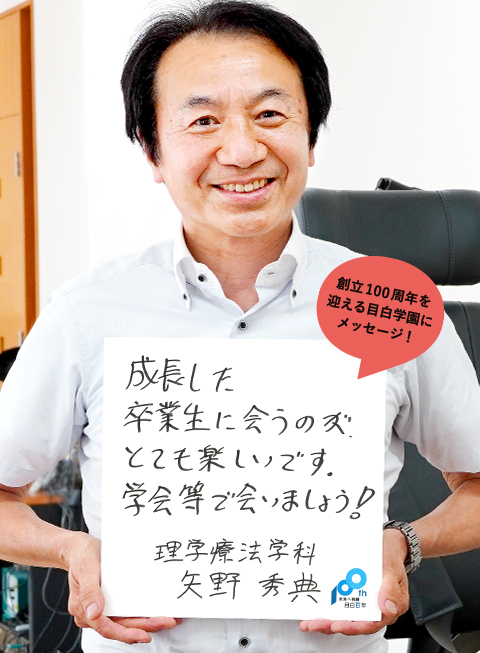 創立100周年を
迎える目白学園に
メッセージ!
成長した
卒業生に会うのが、
とても楽しいです。
学会等で会いましょう!
理学療法学科
矢野 秀典
100th
目白百年